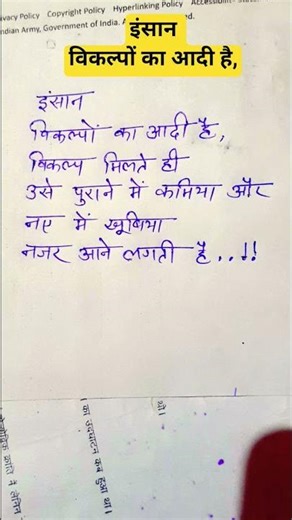 ivacy Policy Copyright Policy Hyperlinking Policy
ndian Army, Government of India.
इंसान
विकल्पों का आदी है,
इंसान
विकल्पों का आदी है,
विकल्प मिलते ही
उसे पुराने में कमिया और
नए में खूबिया
नजर आने लगती है..!!
था।
। का उदघाटन कब हुआ था।